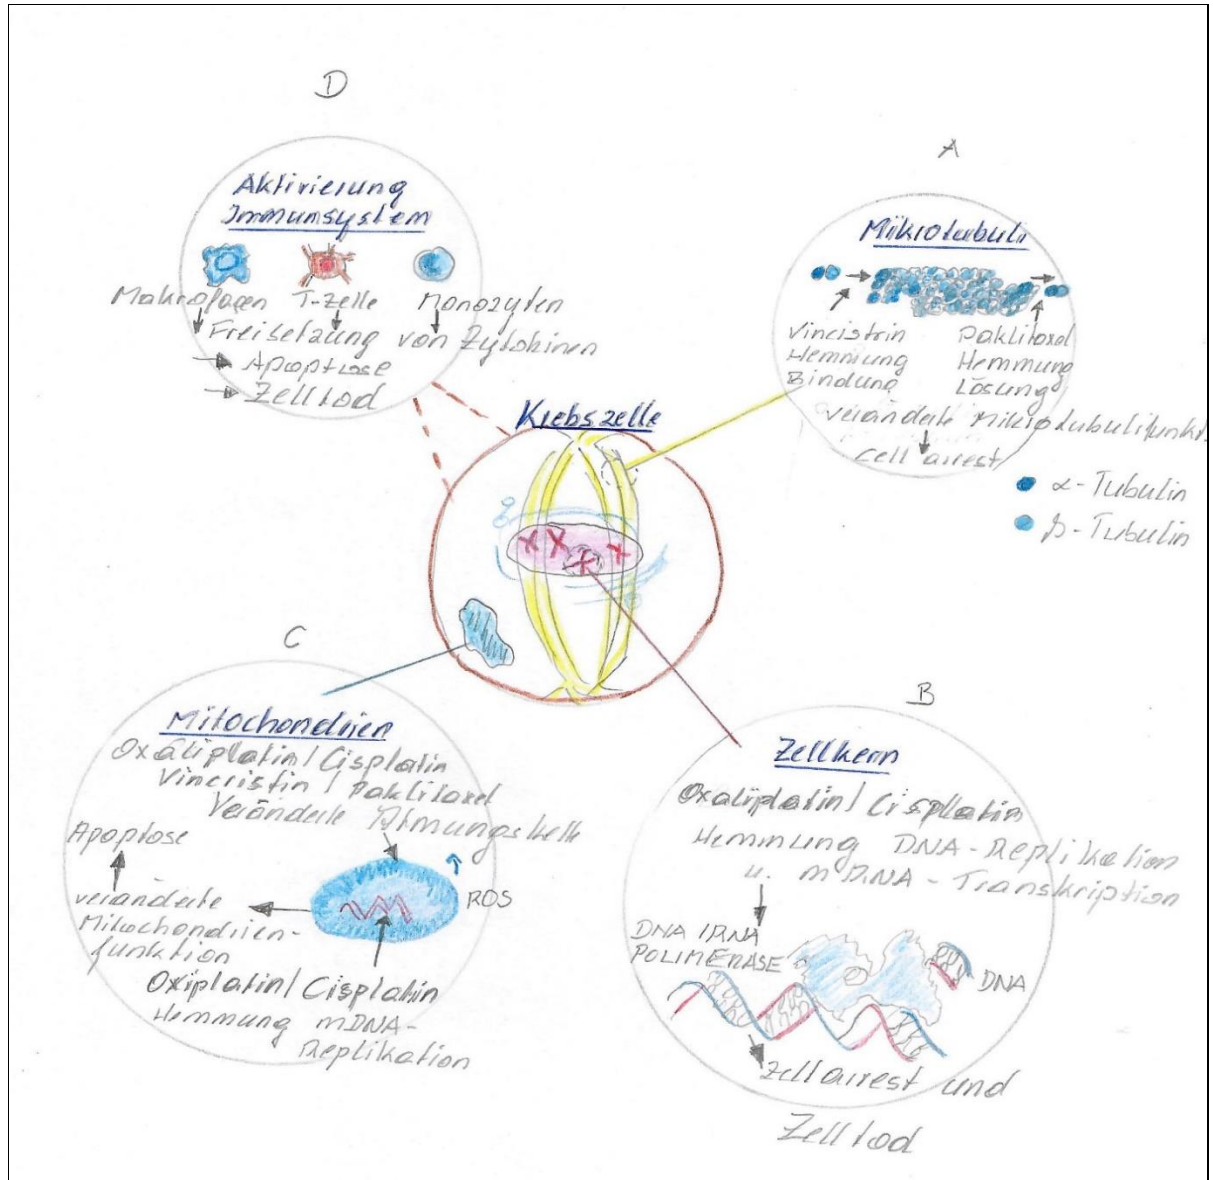 D
Aktivierung
Immunsystem
Makrofagen T-Zelle Monozyten
Freisetzung von Zytokinen
Apoptose
Zelltod
A
Mikrotubuli
Vincistrin Paklitaxel
Hemmung Hemmung
Bindung Lösung
veränderte Mikrotubulifunkt.
Cell arrest
α-Tubulin
β-Tubulin
Krebszelle
C
Mitochondrien
Oxaliplatin/Cisplatin
Vincristin/Paklitaxel
Veränderte Atmungskette
Apoptose
ROS
veränderte
Mitochondrien-
funktion
Oxiplatin/Cisplatin
Hemmung mDNA-
Replikation
B
Zellkern
Oxaliplatin/Cisplatin
Hemmung DNA-Replikation
u. mRNA-Transkription
DNA/RNA
POLIMERASE
DNA
Zellarrest und
Zelltod